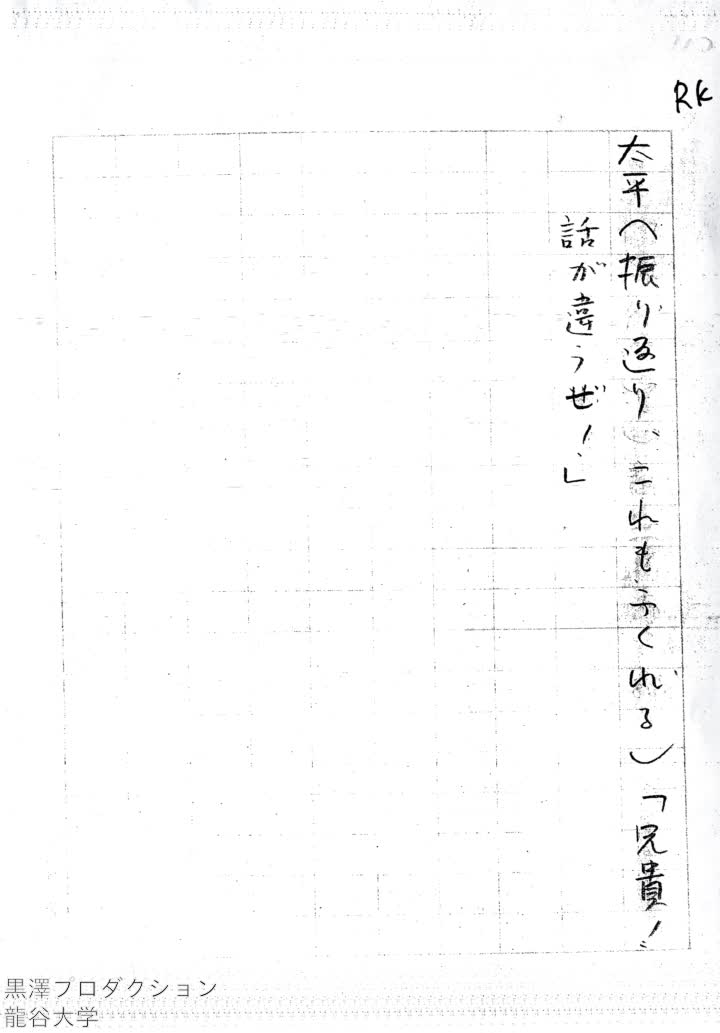 RK
太平へ振り返り、これもふくれる)「兄貴!
話が違うぜ!」
黒澤プロダクション
龍谷大学